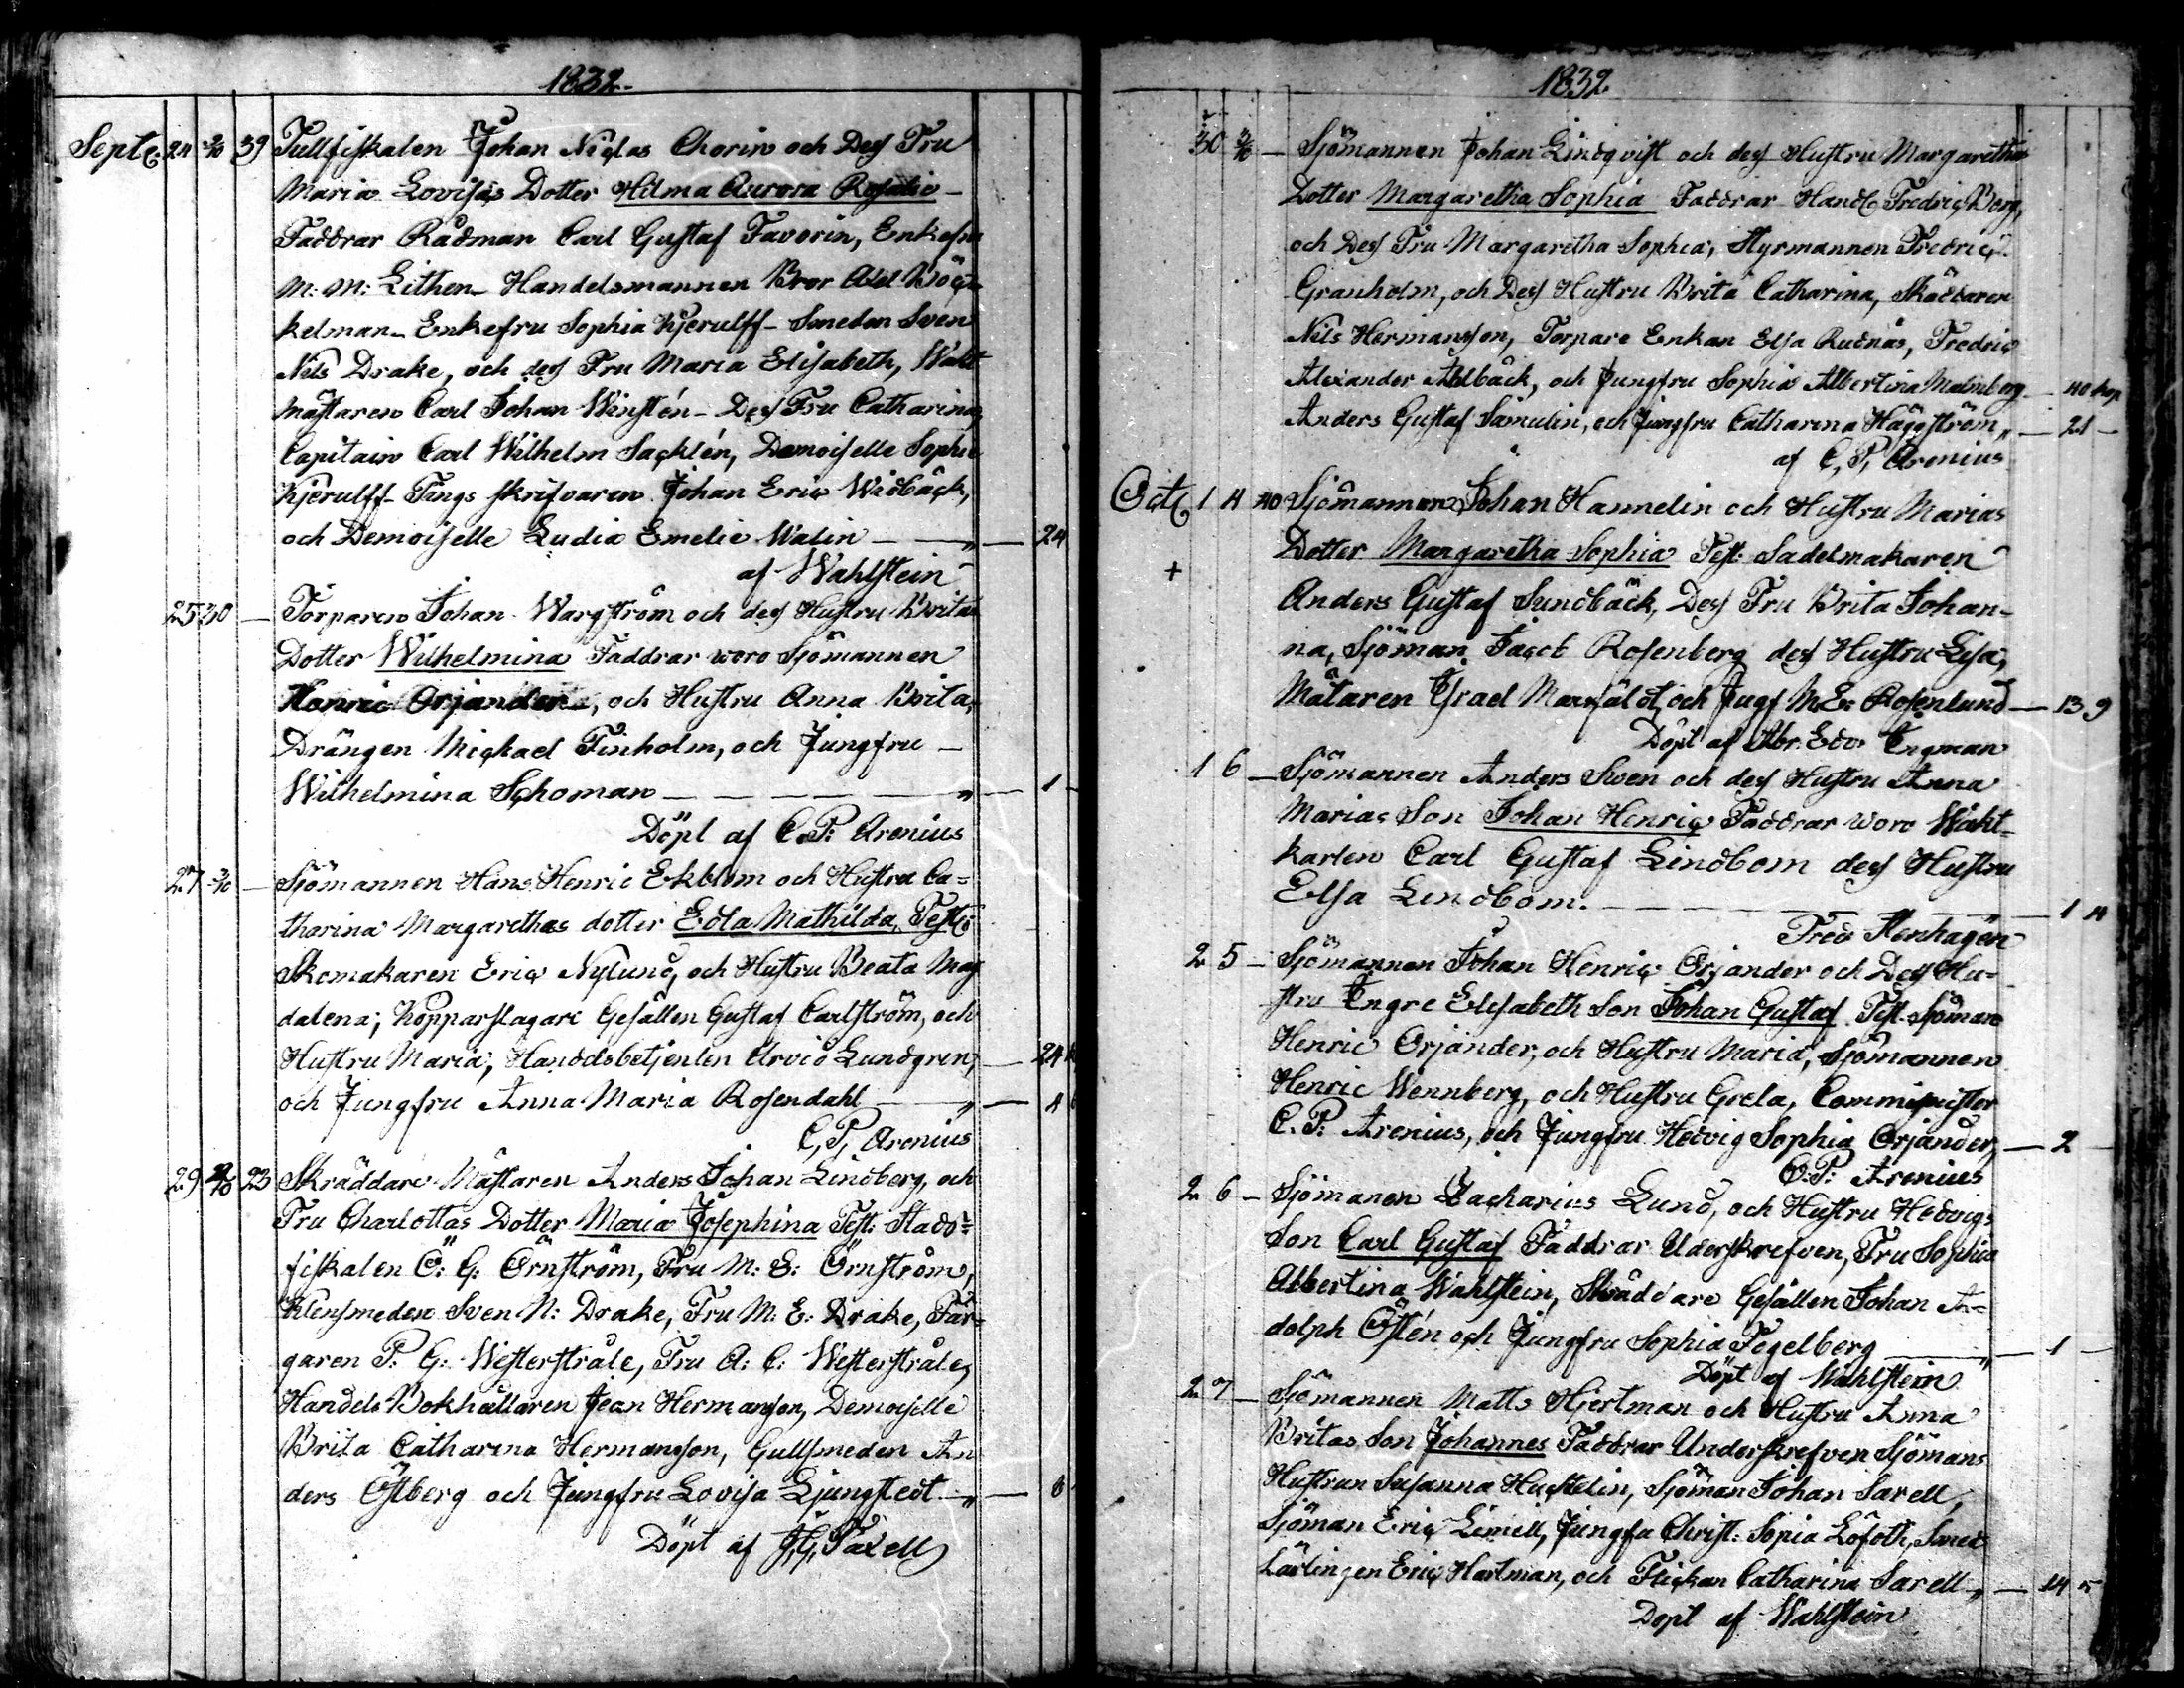 1832.
Septr 24 2/10 39 Tullfiskalen Johan Niclas Chorin och Dess Fru
Maria Lovisas Dotter Hilma Aurora Rosalie
Faddrar Rådman Carl Gustaf Favorin, Enkefru
M: M: Lithen Handelsmannen Bror Axel Böc-
kelman Enkefru Sophia Kjerulff Smeden Sven
Nils Drake, och dess Fru Maria Elisabeth, Wakt
mästaren Carl Johan Winstén Dess Fru Catharina,
Capitain Carl Wilhelm Sacklén, Demoiselle Sophie
Kjerulff Tings skrifvaren Johan Eric Widbäck,
och Demoiselle Ludia Emelie Walin — „ — 24
af Wahlstein
25 30 — Torparen Johan Wargström och dess Hustru Britas
Dotter Wilhelmina Faddrar woro Sjömannen
Henric Orjander, och Hustru Anna Brita,
Drängen Mickael Finholm, och Jungfru
Wilhelmina Schoman — „ — 1
Döpt af C. P: Arenius
27 2/10 — Sjömannen Hans Henric Ekblom och Hustru Ca=
tharina Margarethas dotter Edla Mathilda, Test:
Skomakaren Eric Nylund, och Hustru Beata Mag
dalena; Kopparslagare Gesällen Gustaf Carlström, och
Hustru Maria, Handelsbetjenten Arvid Lundgren, — 24
och Jungfru Anna Maria Rosendahl — „ —
C, P, Arenius
29 23 Skräddare Mästaren Anders Johan Lindberg, och
Fru Charlottas Dotter Maria Josephina Test: Stads=
fiskalen O: G: Örnström, Fru M: E: Örnström,
Klensmeden Sven N: Drake, Fru M: E: Drake, Fär=
garen P. G: Westerstråle, Fru A: C: Westerstråle,
Handels Bokhållaren Jean Hermanson, Demoiselle
Brita Catharina Hermansson, Gullsmeden An
ders Östberg och Jungfru Lovisa Ljungstedt „ — 6
Döpt af J, G, Paxell
1832
30 — Sjömannen Johan Lindqvist och dess Hustru Margarethas
Dotter Margaretha Sophia Faddrar Handl Fredric Borg,
och Dess Fru Margaretha Sophia, Styrmannen Fredric
Granholm, och Dess Hustru Brita Catharina, Skäddaren
Nils Hermansson, Torpare Enkan Elsa Rudnäs, Fredric
Alexander Ahlbäck, och Jungfru Sophia Albertina Malmberg — 40 kop
Anders Gustaf Samulin, och Jungfru Catharina Häggström „ — 21 —
af C, P, Arenius
Octr 1 4 40 Sjömannen Johan Hannelin och Hustru Marias
Dotter Margaretha Sophia Test: Sadelmakaren
+
Anders Gustaf Sundbäck, Dess Fru Brita Johan-
na, Sjöman Jacob Rosenberg dess Hustru Lisa,
Mätaren Israel Marsäldt, och Jugf M. E: Rosenlund — 13 9
Döpt af Abr. Edv Engman
1 6 — Sjömannen Anders Swen och dess Hustru Anna
Marias Son Johan Henric Faddrar woro Wakt-
karlen Carl Gustaf Lindbom dess Hustru
Elsa Lindbom. — 1 4
Fred Stenhagen
2 5 — Sjömannen Johan Henric Orjander och Dess Hu-
stru Engre Elisabeth Son Johan Gustaf Test. Sjöman
Henric Orjander, och Hustru Maria, Sjömannen
Henric Wennberg, och Hustru Greta, Comminister
C. P: Arenius, och Jungfru Hedvig Sophia Orjander, — 2
C: P: Arenius
2 6 — Sjömanen Zacharias Lund, och Hustru Hedvigs
Son Carl Gustaf Faddrar Uderskrefven, Fru Sophia
Albertina Wahlstein, Skräddare Gesällen Johan A-
dolph Östén och Jungfru Sophia Fegelberg — „ — 1 —
Döpt af Wahlstein
2 7 — Sjömannen Matts Hjertman och Hustru Anna
Britas Son Johannes Faddrar Underskrefven Sjömans
Hustrun Susanna Hustelin, Sjöman Johan Sarell,
Sjöman Eric Limell, Jungfu Christ: Sopia Löfoth, Smed
Lärlingen Eric Hartman, och Flickan Catharina Sarell „ — 14
Döpt af Wahlstein